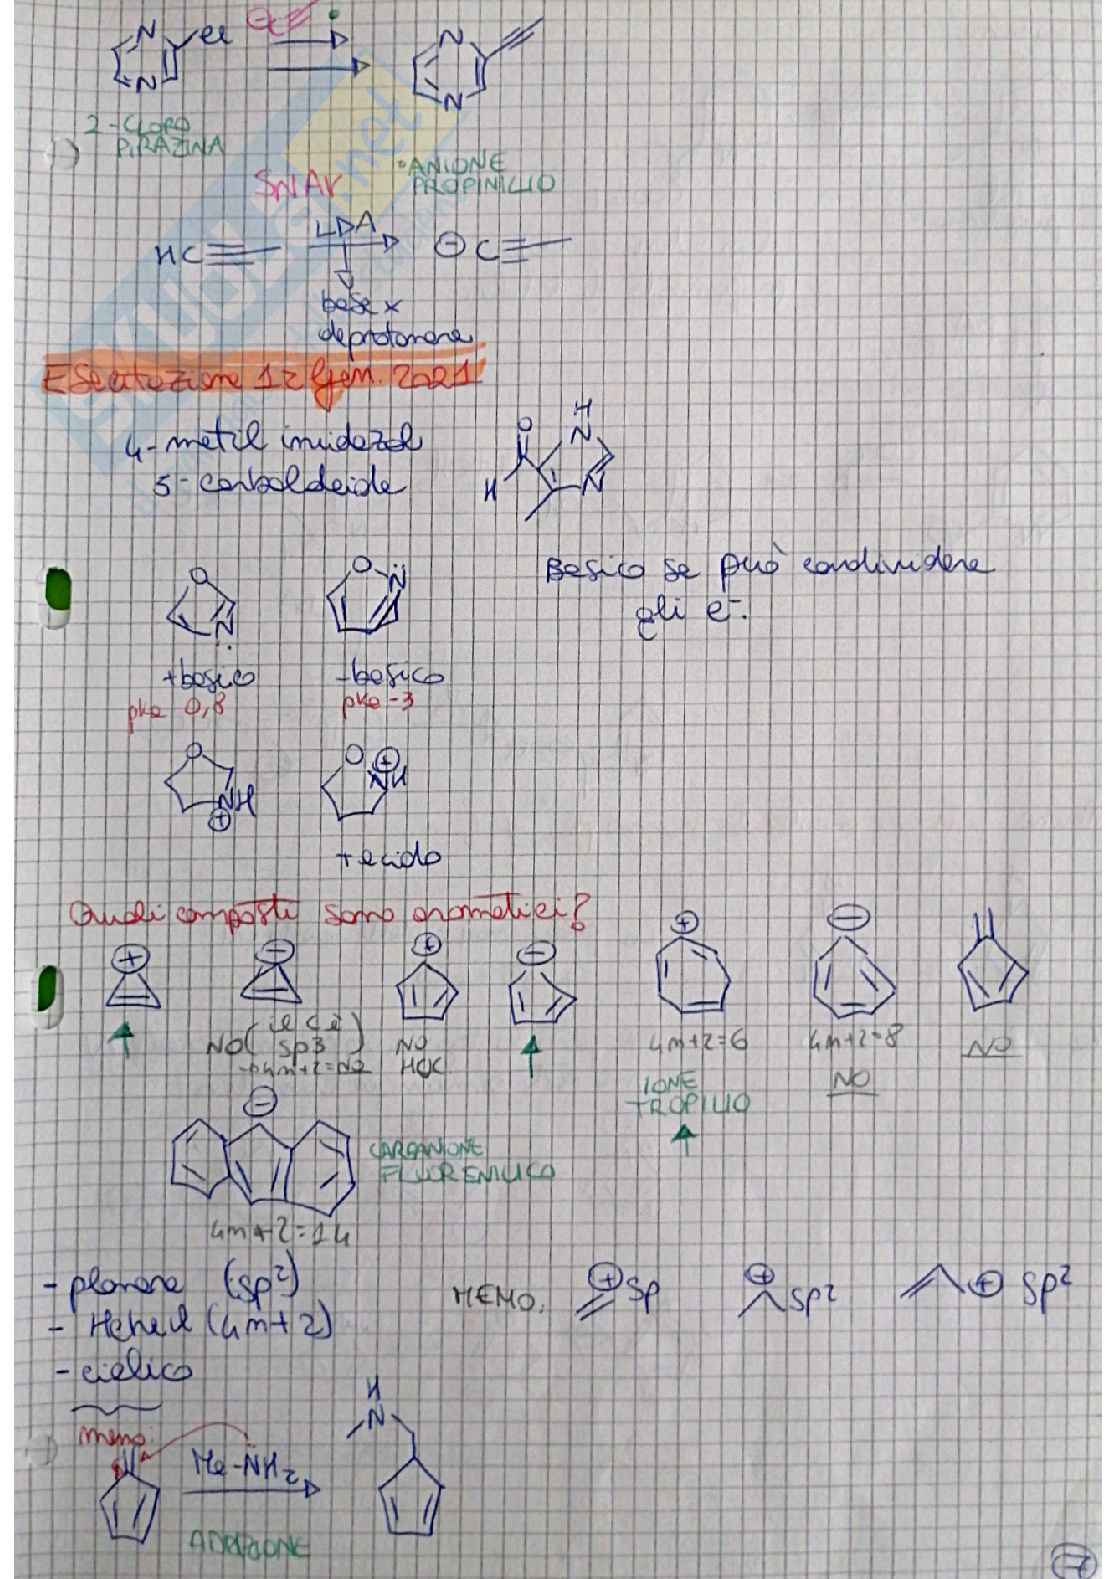 N
Cl
N
N
N
2-CLORO
PIRAZINA
SNAr
• ANIONE
PROPINILIO
HC
LDA
⊖ C
base x
deprotonare
Esercitazione 12 Gen. 2021
4-metil imidazol
5-carbaldeide
O
H
N
H
N
O
N
O
N
Basico se può condividere
gli e⁻.
+basico
-basico
pka 0,8
pka -3
O
NH
⊕
O
⊕
NH
+acido
Quali composti sono aromatici?
⊕
⊖
⊕
⊖
⊕
⊖
NO (il C è
sp3
4m+2=
NO
HÜC
4m+2=6
4m+2=8
NO
IONE
TROPILIO
NO
⊖
CARBANIONE
FLUORENILICO
4m+2=14
- planare (sp²)
- Hchel (4m+2)
- ciclico
MEMO.
⊕ sp
⊕ sp²
⊕ sp²
meno
Me-NH₂
H
N
ADDIZIONE
17